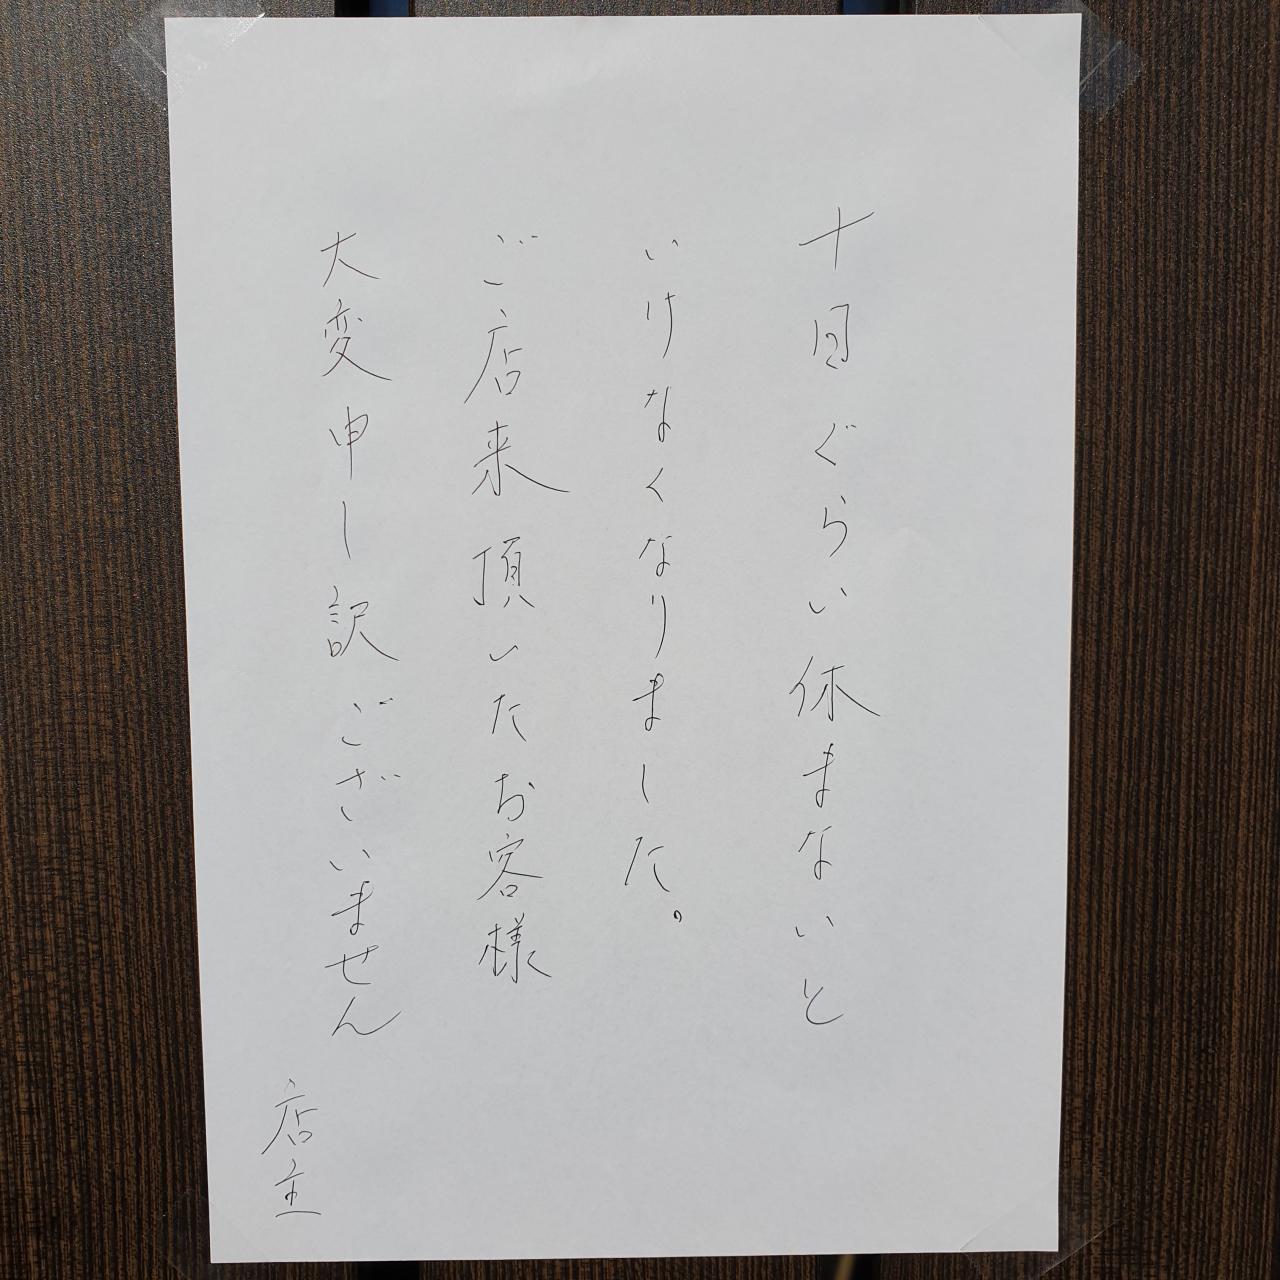 十日ぐらい休まないと
いけなくなりました。
ご店来頂いたお客様
大変申し訳ございません
店主